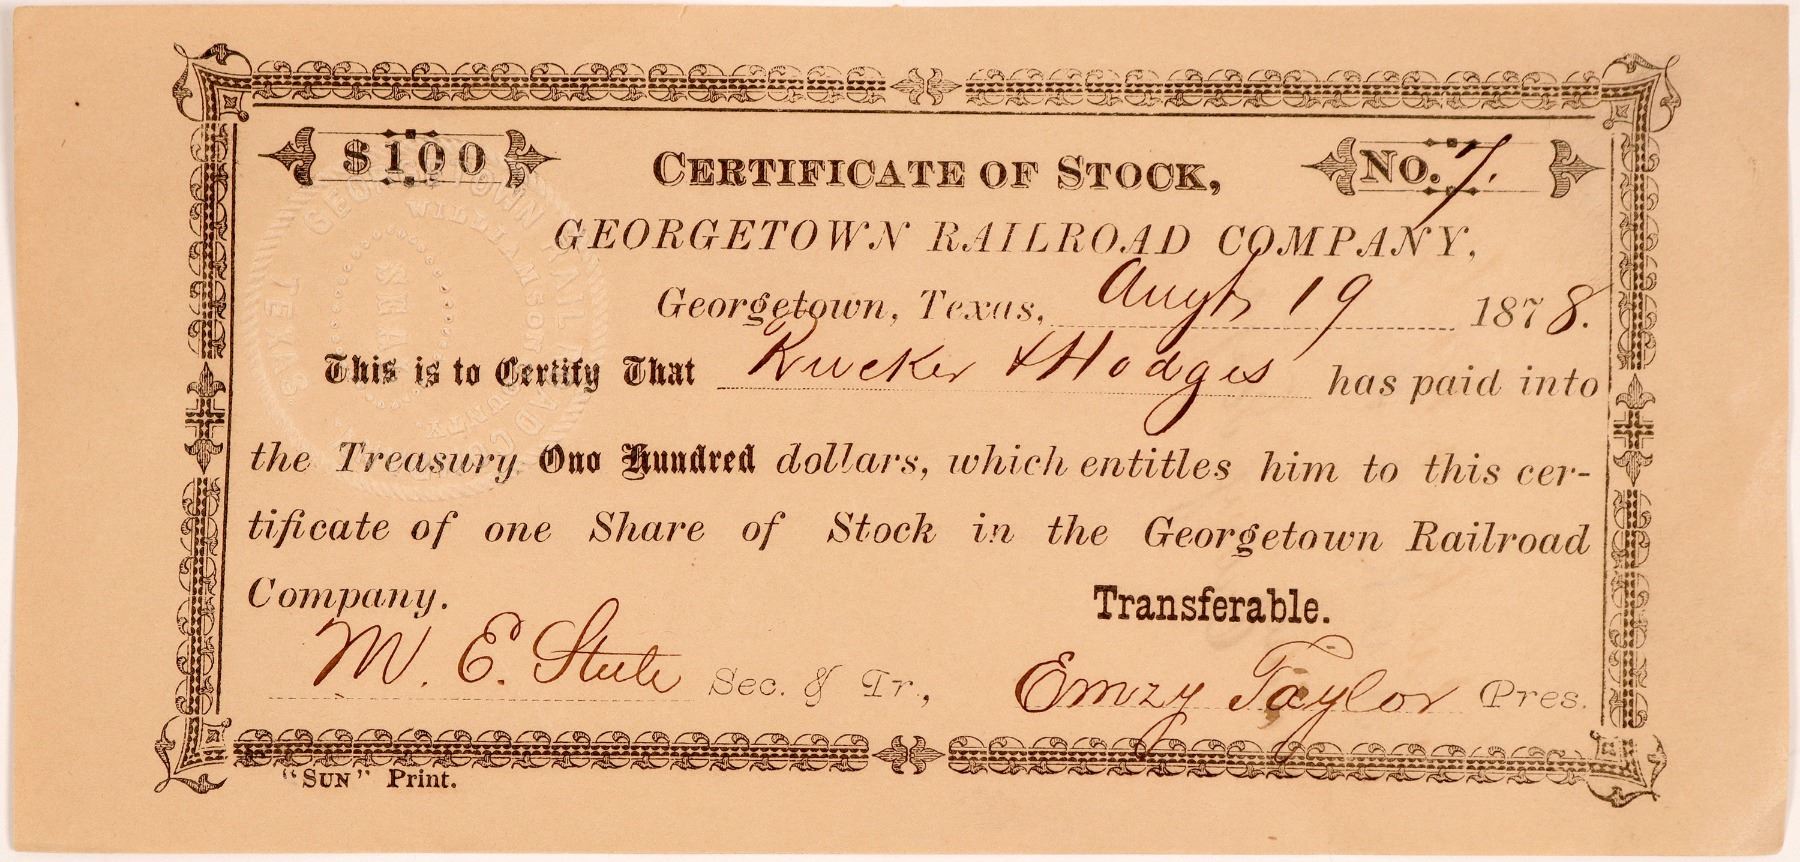 $100
CERTIFICATE OF STOCK,
No. 7.
GEORGETOWN RAILROAD COMPANY,
Georgetown, Texas, Augt 19 1878.
This is to Certify That Rucker & Hodges has paid into
the Treasury One Hundred dollars, which entitles him to this cer-
tificate of one Share of Stock in the Georgetown Railroad
Company.
Transferable.
M. E. Steele Sec. & Tr.,
Emzy Taylor Pres.
"SUN" Print.
GEORGETOWN RAIL ROAD CO.
WILLIAMSON COUNTY.
TEXAS
SEAL